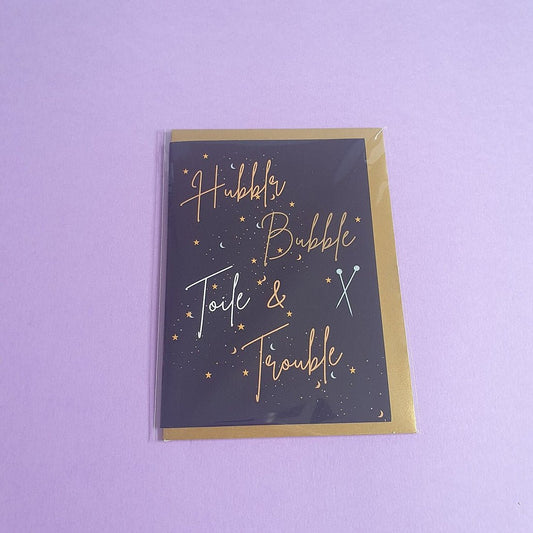 Hubble
Bubble
Toile &
Trouble